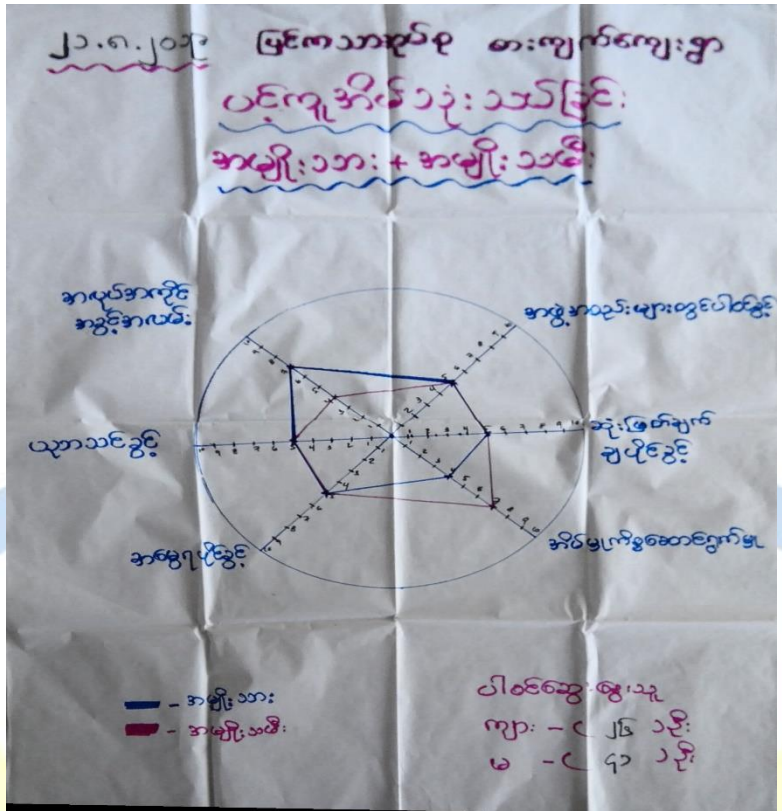 ၂၁.၈.၂၀၁၃ မြင်ကသာအုပ်စု စားကျက်ကျေးရွာ
ပင့်ကူအိမ်သုံးသပ်ခြင်း
အမျိုးသား + အမျိုးသမီး
အလုပ်အကိုင်
အခွင့်အလမ်း
အဖွဲ့အစည်းများတွင်ပါဝင်ခွင့်
ပညာသင်ခွင့်
ဆုံးဖြတ်ချက်
ချပိုင်ခွင့်
အမွေရပိုင်ခွင့်
အိမ်မှုကိစ္စဆောင်ရွက်မှု
- အမျိုးသား
- အမျိုးသမီး
ပါဝင်ဆွေးနွေးသူ
ကျား - ( ၂၆ ) ဦး
မ - ( ၄၁ ) ဦး